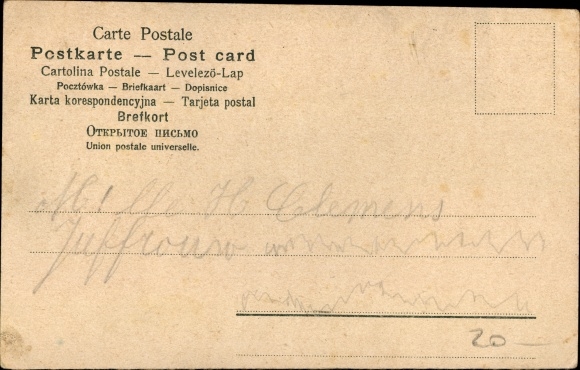 Carte Postale
Postkarte — Post card
Cartolina Postale — Levelező-Lap
Pocztówka — Briefkaart — Dopisnice
Karta korespondencyjna — Tarjeta postal
Brefkort
Открытое письмо
Union postale universelle.
H Clemens
Juffrouw
20 —